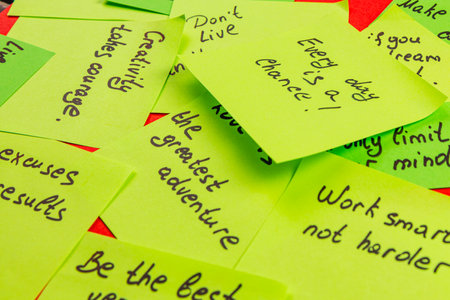 Don't
Live
Every day
is a
chance!
Make
if you
ream
Creativity
takes courage.
Live
Love is
the
greatest
adventure
only limit
mind
excuses
results
Work smart
not harder
Be the best